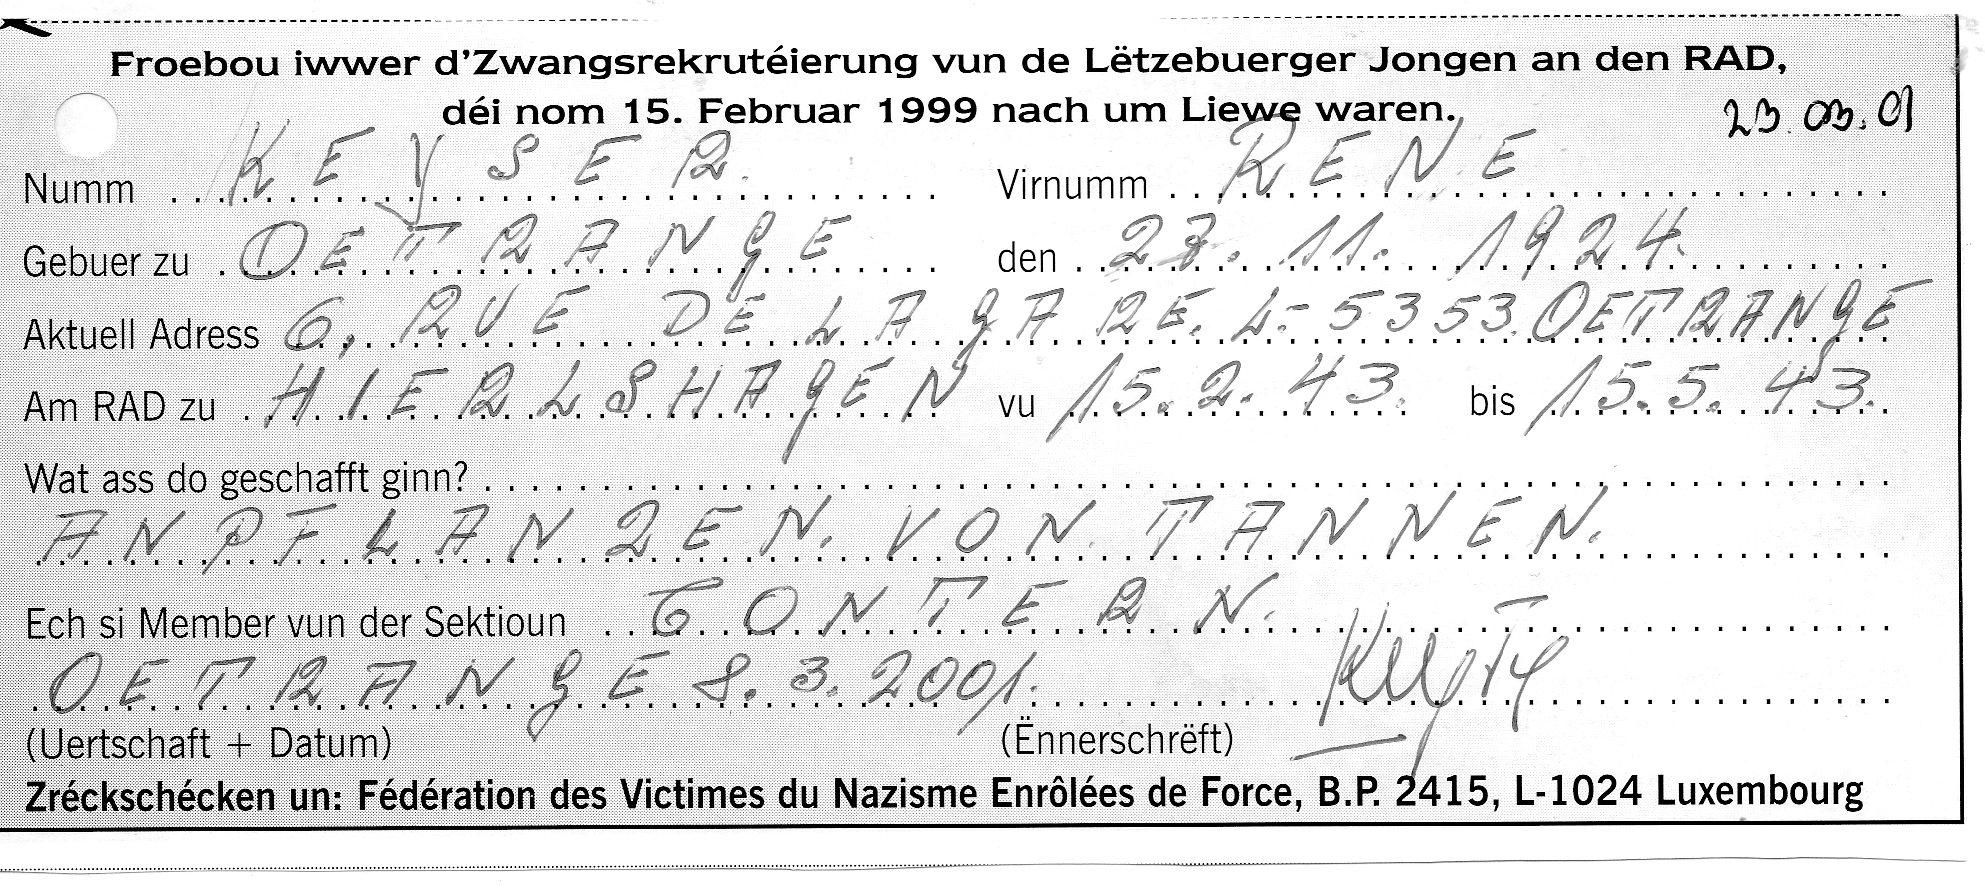 Froebou iwwer d'Zwangsrekrutéierung vun de Lëtzebuerger Jongen an den RAD,
déi nom 15. Februar 1999 nach um Liewe waren.
23.03.01
Numm KEYSER. Virnumm RENE
Gebuer zu OETRANGE den 11. 1924.
Aktuell Adress 6, RUE DE LA GARE. L-5353. OETRANGE
Am RAD zu HIERLSHAGEN vu 15.2.43. bis 15.5.43.
Wat ass do geschafft ginn?
ANPFLANZEN. VON TANNEN.
Ech si Member vun der Sektioun CONTERN.
OETRANGE 8.3.2001.
(Uertschaft + Datum) (Ënnerschrëft)
Zréckschécken un: Fédération des Victimes du Nazisme Enrôlées de Force, B.P. 2415, L-1024 Luxembourg